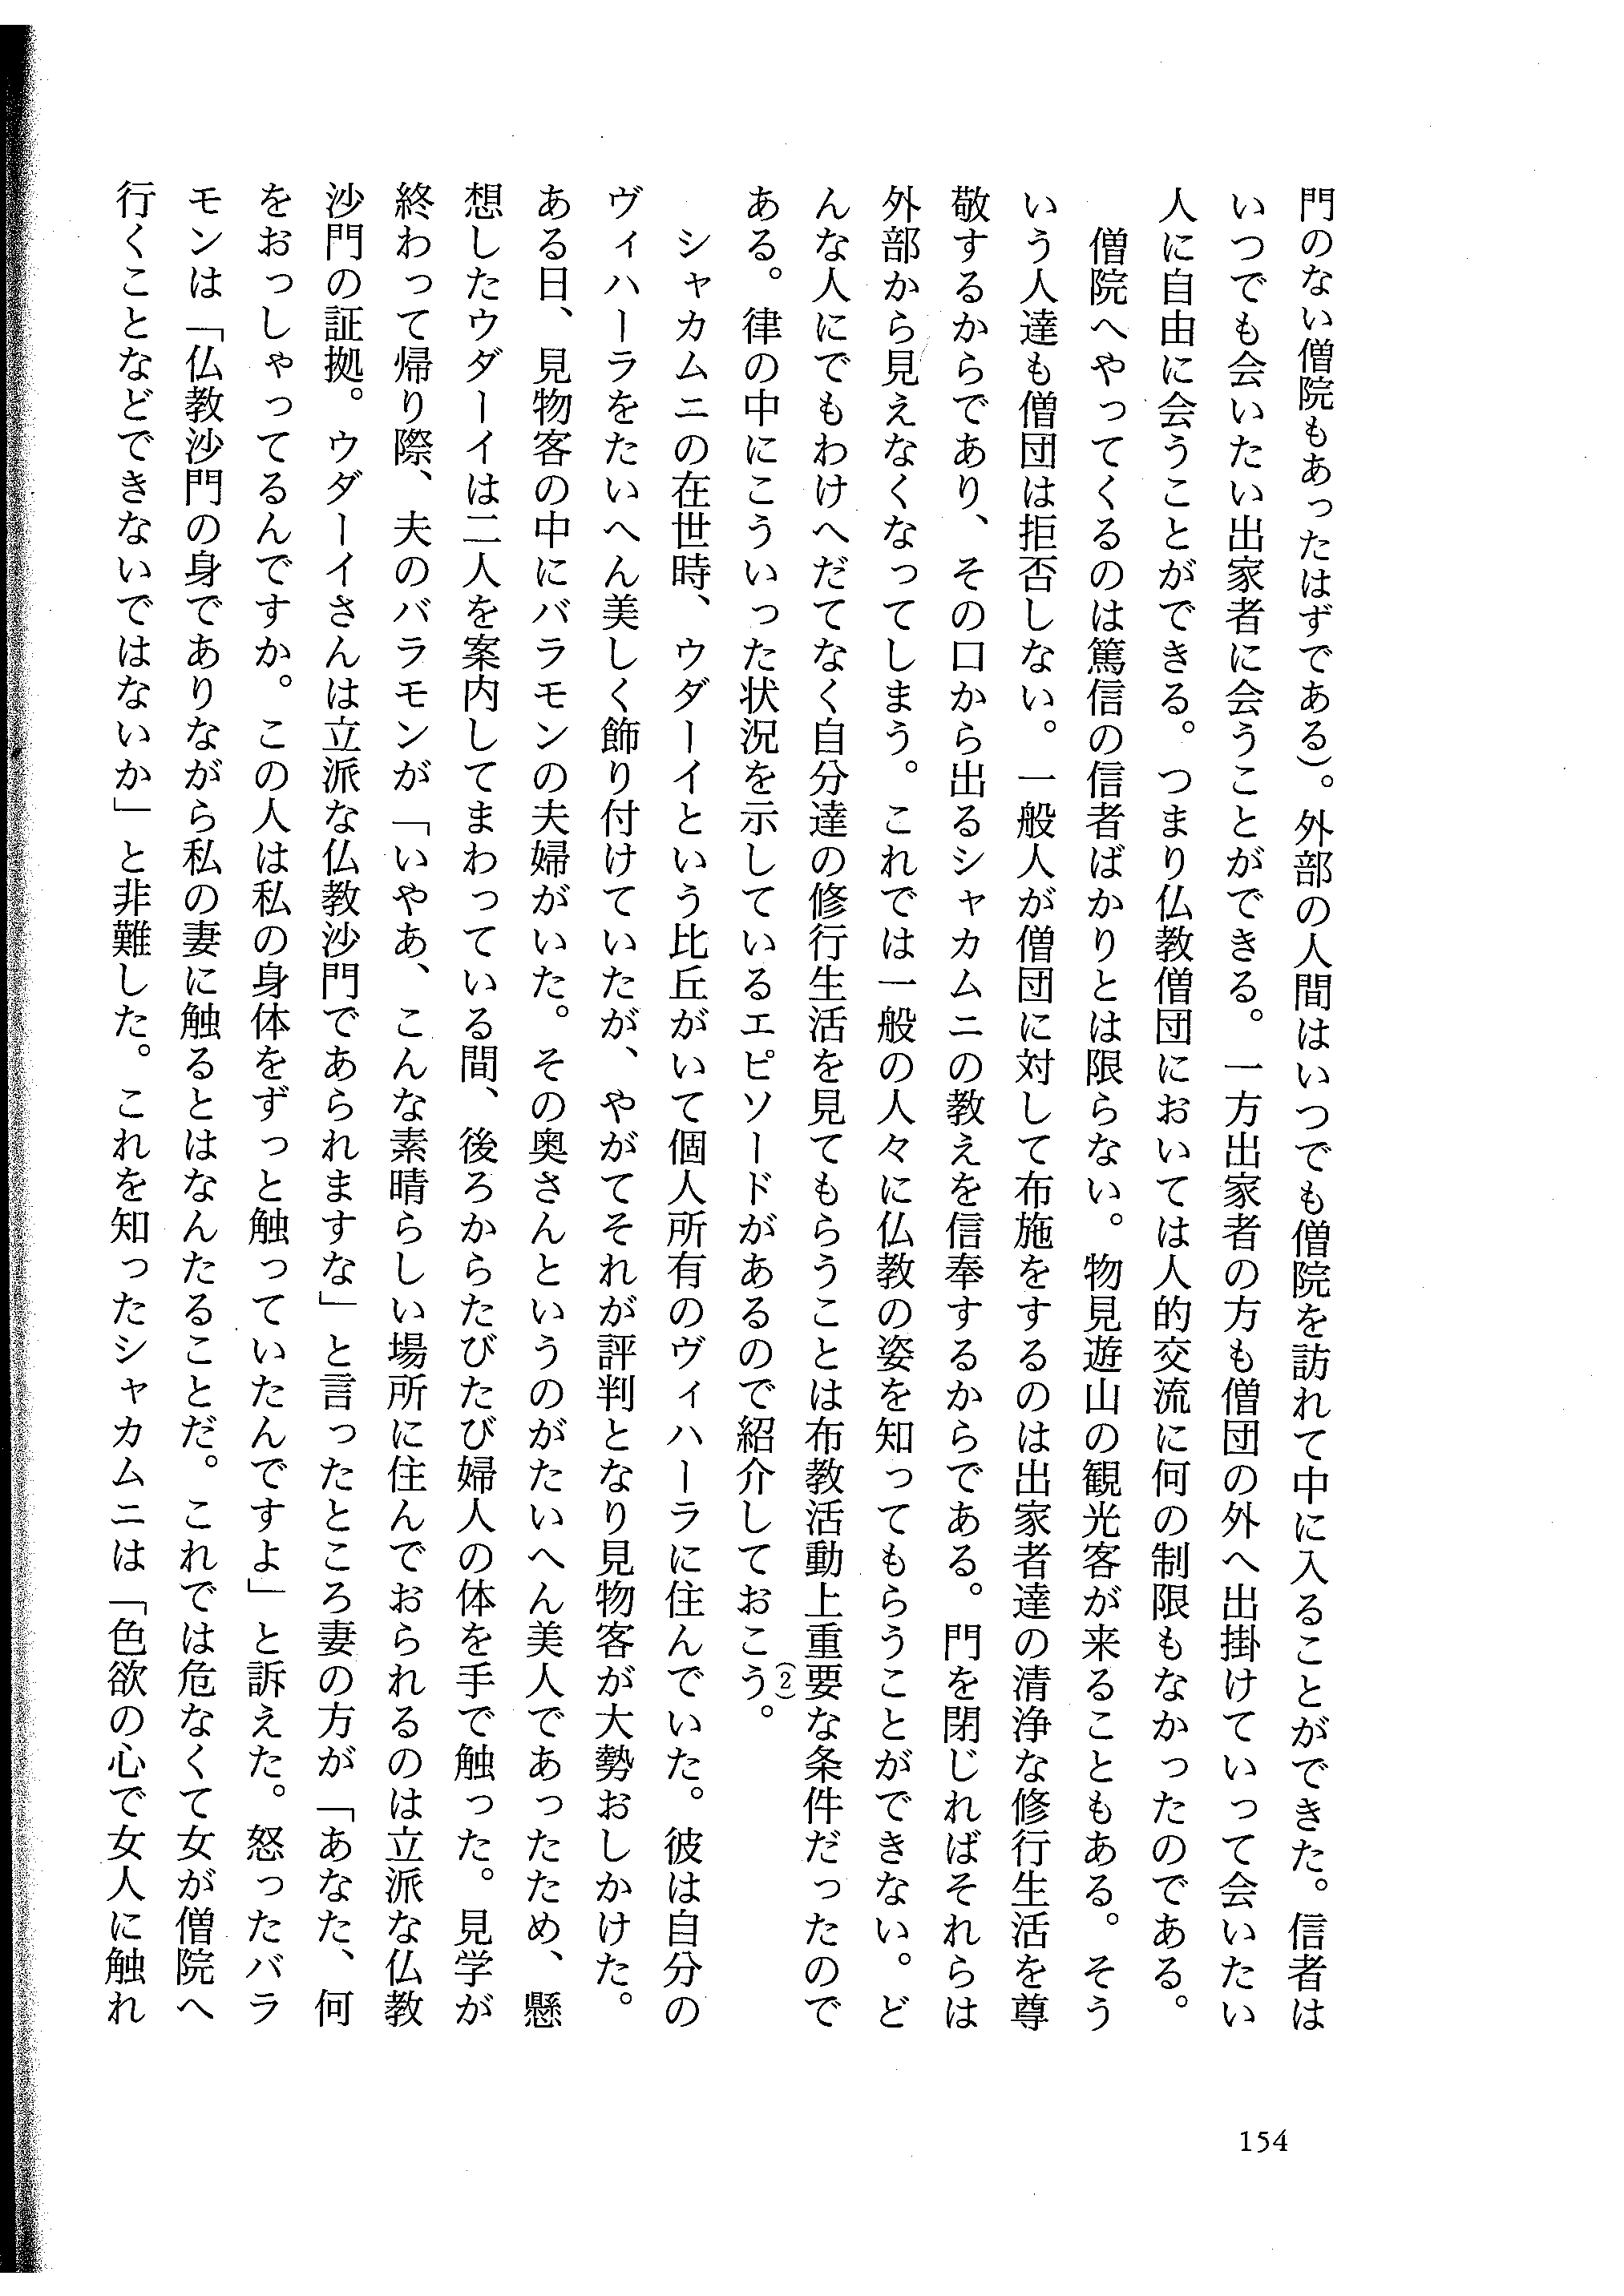 門のない僧院もあったはずである)。外部の人間はいつでも僧院を訪れて中に入ることができた。信者は
いつでも会いたい出家者に会うことができる。一方出家者の方も僧団の外へ出掛けていって会いたい
人に自由に会うことができる。つまり仏教僧団においては人的交流に何の制限もなかったのである。
僧院へやってくるのは篤信の信者ばかりとは限らない。物見遊山の観光客が来ることもある。そう
いう人達も僧団は拒否しない。一般人が僧団に対して布施をするのは出家者達の清浄な修行生活を尊
敬するからであり、その口から出るシャカムニの教えを信奉するからである。門を閉じればそれらは
外部から見えなくなってしまう。これでは一般の人々に仏教の姿を知ってもらうことができない。ど
んな人にでもわけへだてなく自分達の修行生活を見てもらうことは布教活動上重要な条件だったので
ある。律の中にこういった状況を示しているエピソードがあるので紹介しておこう。(2)
シャカムニの在世時、ウダーイという比丘がいて個人所有のヴィハーラに住んでいた。彼は自分の
ヴィハーラをたいへん美しく飾り付けていたが、やがてそれが評判となり見物客が大勢おしかけた。
ある日、見物客の中にバラモンの夫婦がいた。その奥さんというのがたいへん美人であったため、懸
想したウダーイは二人を案内してまわっている間、後ろからたびたび婦人の体を手で触った。見学が
終わって帰り際、夫のバラモンが「いやあ、こんな素晴らしい場所に住んでおられるのは立派な仏教
沙門の証拠。ウダーイさんは立派な仏教沙門であられますな」と言ったところ妻の方が「あなた、何
をおっしゃってるんですか。この人は私の身体をずっと触っていたんですよ」と訴えた。怒ったバラ
モンは「仏教沙門の身でありながら私の妻に触るとはなんたることだ。これでは危なくて女が僧院へ
行くことなどできないではないか」と非難した。これを知ったシャカムニは「色欲の心で女人に触れ
154